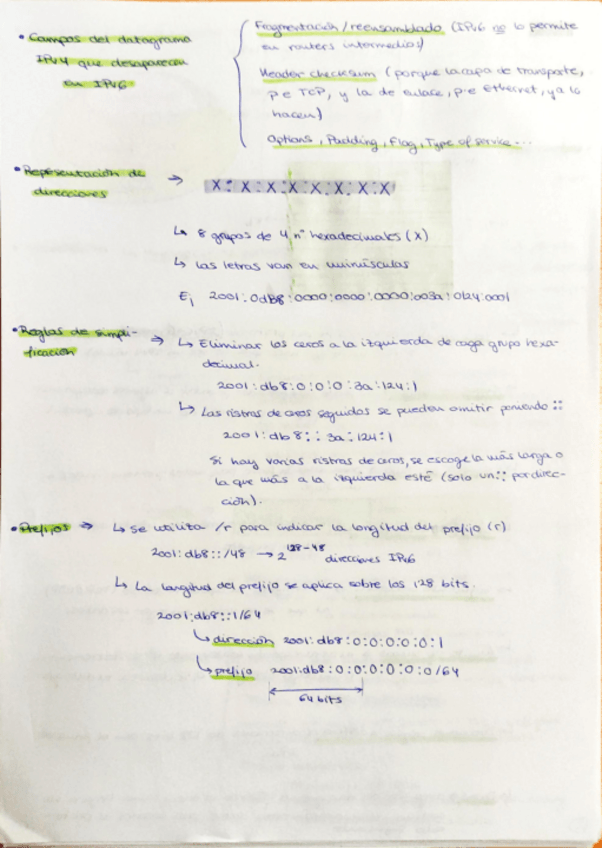 • Campos del datagrama
IPv4 que desaparecen
en IPv6
Fragmentación/reensamblado (IPv6 no lo permite
en routers intermedios)
Header checksum (porque la capa de transporte,
p.e TCP, y la de enlace, p.e ethernet, ya lo
hacen)
Options, Padding, Flag, Type of service...
• Representación de
direcciones →
X:X:X:X:X:X:X:X
↳ 8 grupos de 4 nº hexadecimales (X)
↳ Las letras van en minúsculas
Ej 2001:0db8:0000:0000:0000:003a:0124:0001
• Reglas de simpli-
ficación →
↳ Eliminar los ceros a la izquierda de caga grupo hexa-
decimal.
2001:db8:0:0:0:3a:124:1
↳ Las ristras de ceros seguidos se pueden omitir poniendo ::
2001:db8::3a:124:1
Si hay varias ristras de ceros, se escoge la más larga o
la que más a la izquierda esté (solo un :: por direc-
ción).
• Prefijos → ↳ Se utiliza /r para indicar la longitud del prefijo (r)
2001:db8::/48 → 2^128-48 direcciones IPv6
↳ La longitud del prefijo se aplica sobre los 128 bits.
2001:db8::1/64
↳ dirección 2001:db8:0:0:0:0:0:1
↳ prefijo 2001:db8:0:0:0:0:0:0/64
64 bits